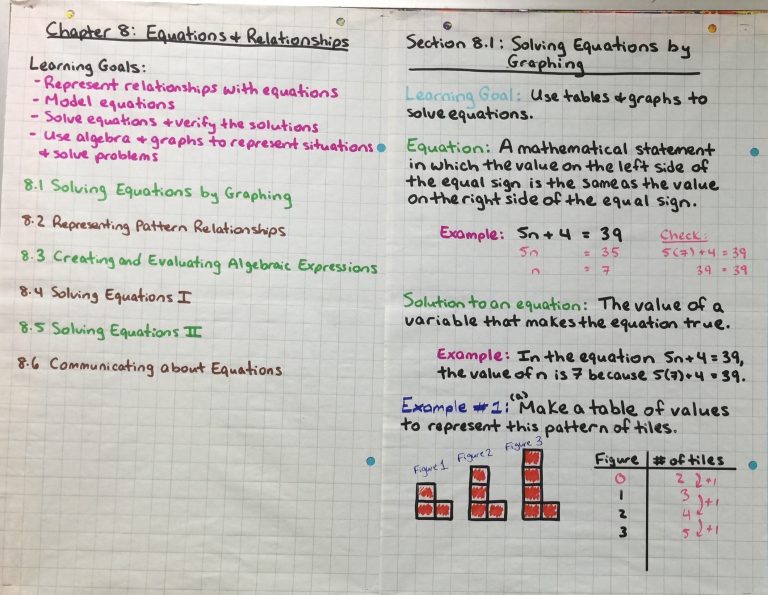 Chapter 8: Equations & Relationships
Learning Goals:
- Represent relationships with equations
- Model equations
- Solve equations & verify the solutions
- Use algebra & graphs to represent situations
& solve problems
8.1 Solving Equations by Graphing
8.2 Representing Pattern Relationships
8.3 Creating and Evaluating Algebraic Expressions
8.4 Solving Equations I
8.5 Solving Equations II
8.6 Communicating about Equations
Section 8.1: Solving Equations by
Graphing
Learning Goal: Use tables & graphs to
solve equations.
Equation: A mathematical statement
in which the value on the left side of
the equal sign is the same as the value
on the right side of the equal sign.
Example: 5n + 4 = 39
5n = 35
n = 7
Check:
5(7)+4 = 39
39 = 39
Solution to an equation: The value of a
variable that makes the equation true.
Example: In the equation 5n+4=39,
the value of n is 7 because 5(7)+4=39.
Example #1: (a) Make a table of values
to represent this pattern of tiles.
Figure 1 Figure 2 Figure 3
Figure # of tiles
0 2 +1
1 3 +1
2 4
3 5 +1